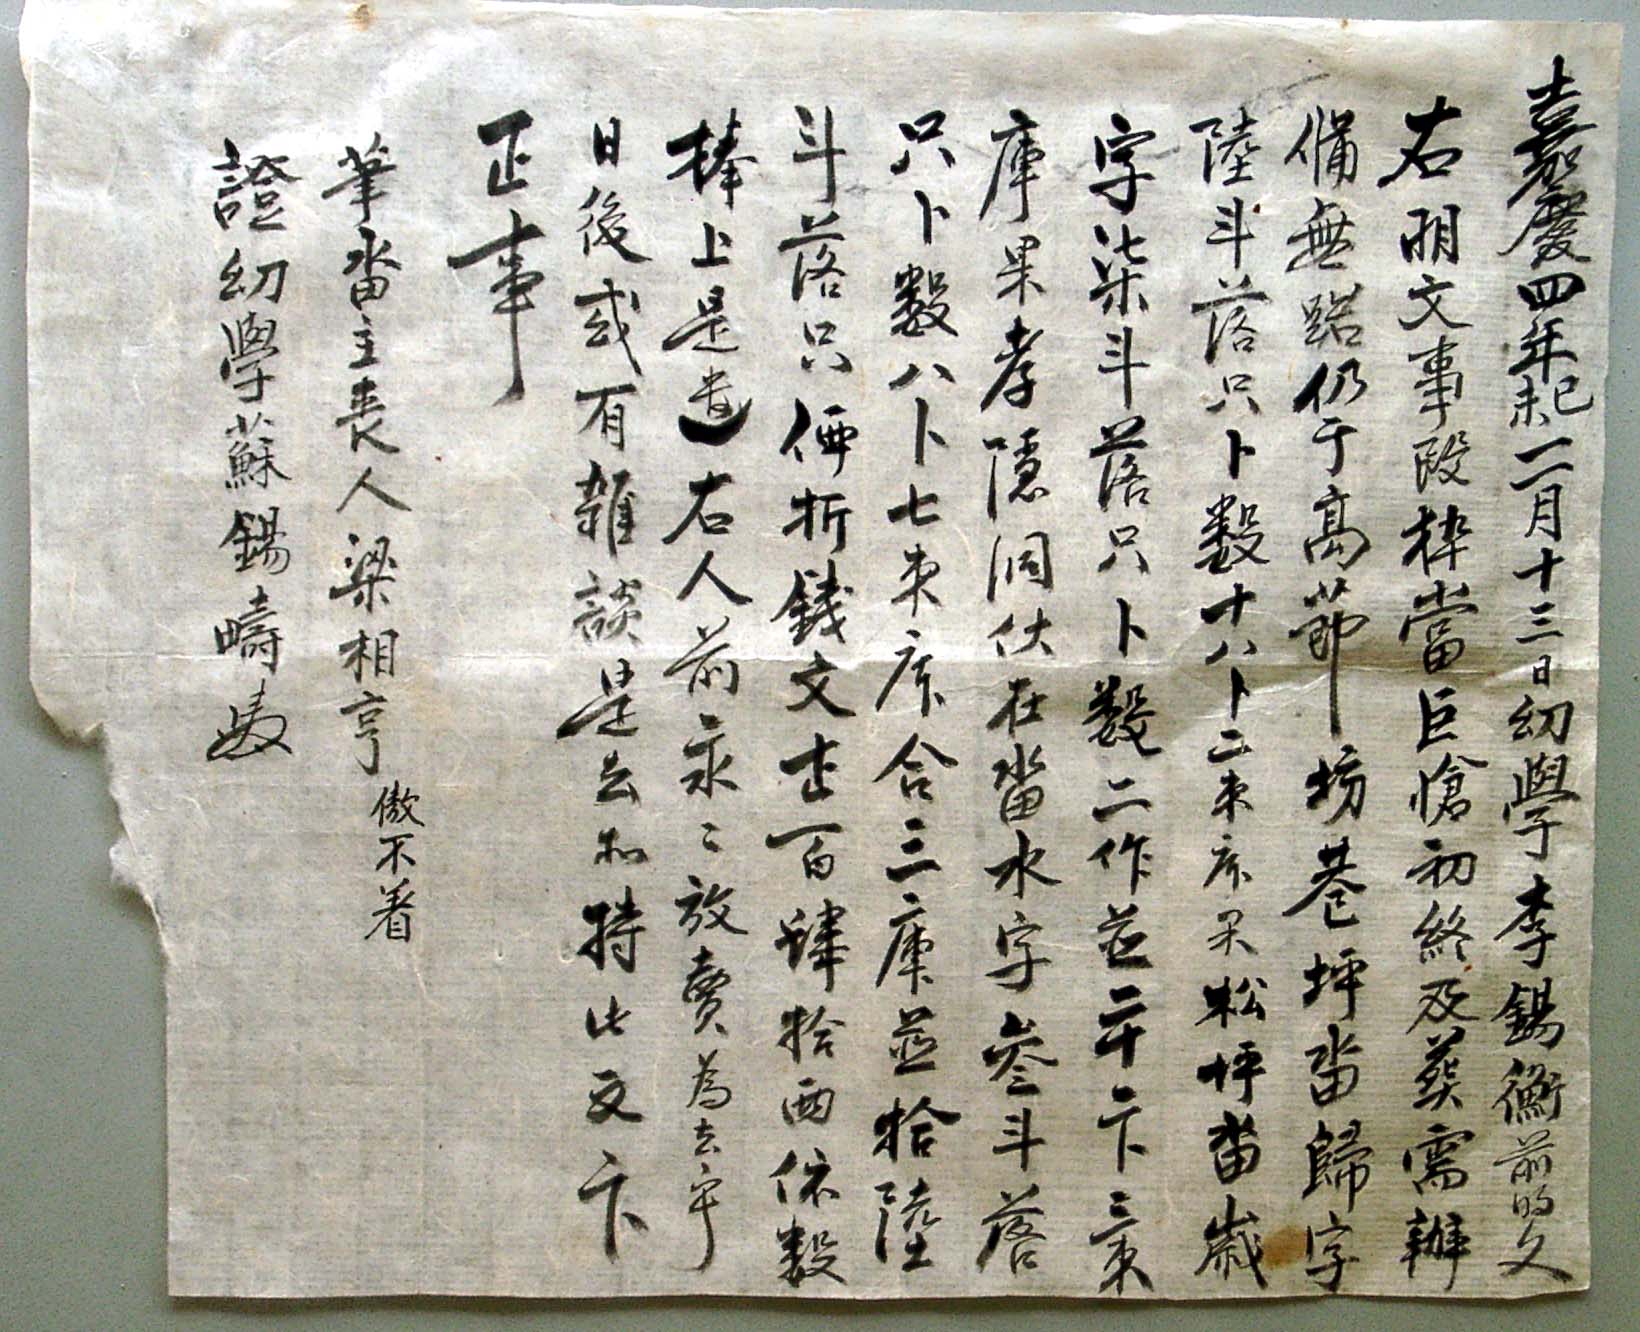 嘉慶四年己未二月十三日幼學李錫衡前明文
右明文事段梓當巨愴初終及葬需辦
備無路仍于高節坊巷坪畓歸字
陸斗落只卜數十八卜二束庫果松坪畓歲
字柒斗落只卜數二作並二十卜三束
庫果孝隱洞伏在畓水字參斗落
只卜數八卜七束庫合三庫並拾陸
斗落只価折錢文壹百肆拾兩依數
捧上是遣右人前永々放賣為去乎
日後或有雜談是去和持此文卞
正事
筆畓主喪人梁相亨 傲不着
證幼學蘇錫疇